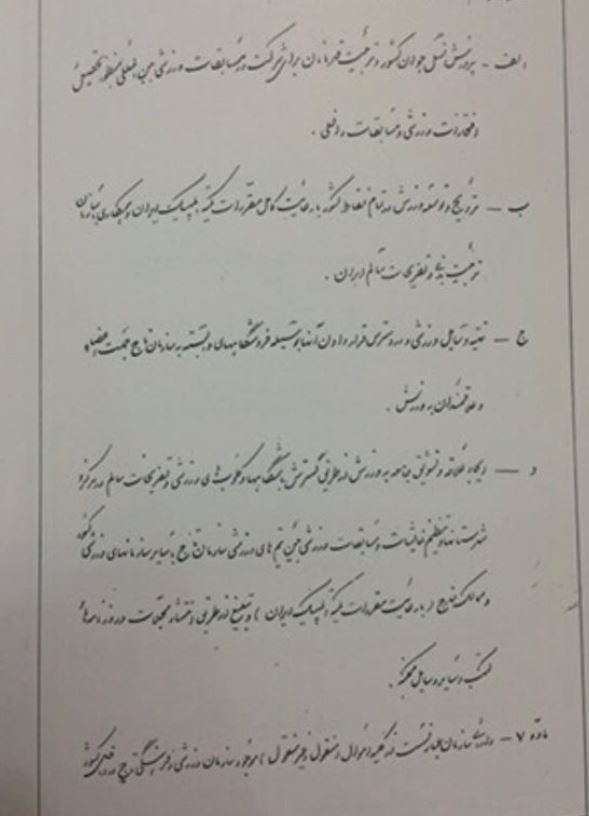 الف - پرورش نسل جوان کشور و تربیت قهرمانان برای شرکت در مسابقات ورزشی بین المللی بمنظور تحصیل
افتخارات ورزشی و مسابقات داخلی .
ب - ترویج و توسعه ورزش در تمام نقاط کشور با رعایت کامل مقررات کمیته المپیک ایران و همکاری با سازمان
تربیت بدنی و تفریحات سالم ایران .
ج - تهیه وسایل ورزشی و در دسترس قرار دادن آنها بوسیله فروشگاههای وابسته به سازمان تاج جهت اعضاء
و علاقمندان به ورزش .
د - ایجاد علاقه و تشویق جامعه به ورزش از طریق گسترش باشگاهها و کلوب های ورزشی و تفریحات سالم در مرکز و
شهرستانها و تنظیم فعالیت و مسابقات ورزشی بین تیم های ورزشی سازمان تاج با سایر سازمانهای ورزشی کشور
و ممالک خارج ( با رعایت مقررات کمیته المپیک ایران ) و تبلیغ از طریق انتشار مجلات و روزنامه ها
کتب و سایر وسایل ممکنه .
ماده ۷ - دارائی سازمان عبارتست از کلیه اموال ( منقول و غیر منقول ) موجود سازمان ورزشی و فرهنگی تاج در داخل کشور